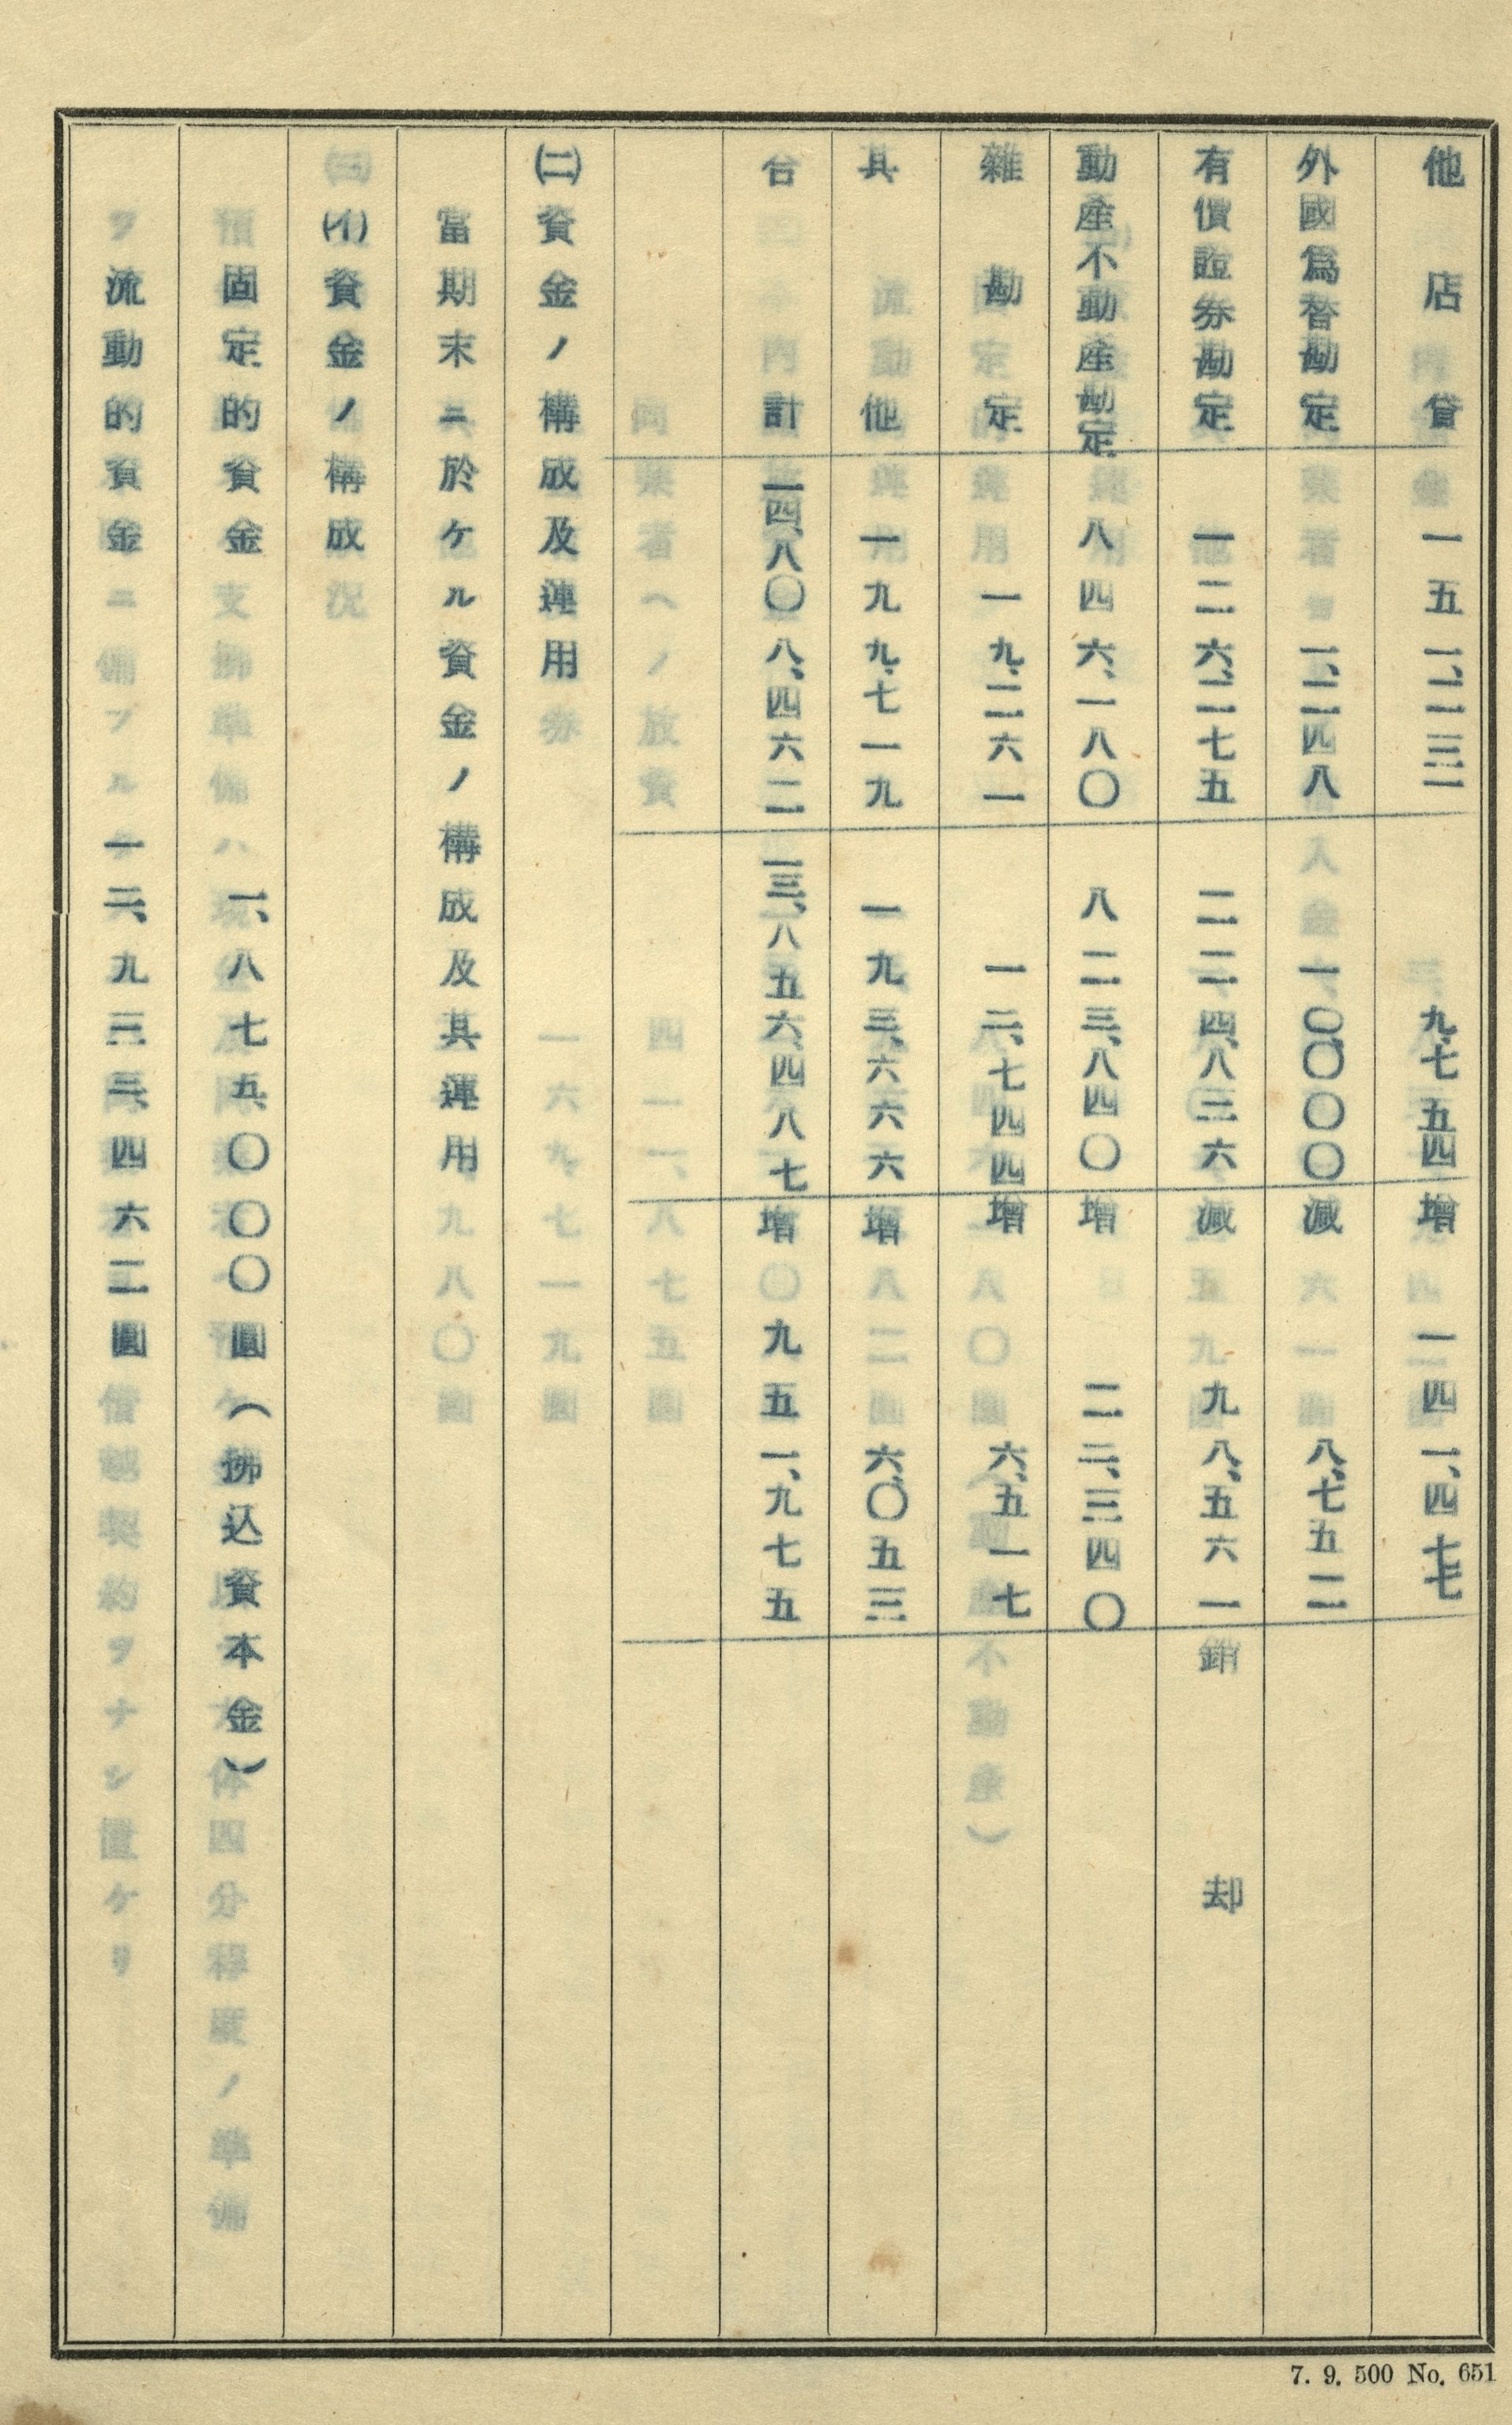 他店貸 一五一、二三一 九、七五四 増 一四一、四七七
外國爲替勘定 一、二四八 一〇、〇〇〇 減 八、七五二
有價證券勘定 一二六、二七五 二二四、八三六 減 九八、五六一 銷却
動産不動産勘定 八四六、一八〇 八二三、八四〇 増 二二、三四〇
雜勘定 一九、二六一 一二、七四四 増 六、五一七
其他 一九九、七一九 一九三、六六六 増 六、〇五三
合計 一四、八〇八、四六二 一三、八五六、四八七 増 九五一、九七五
(二)資金ノ構成及運用
當期末ニ於ケル資金ノ構成及其運用
(イ)資金ノ構成
固定的資金 一、八七五、〇〇〇圓(拂込資本金)
流動的資金 一二、九三三、四六二圓
7. 9. 500 No. 651